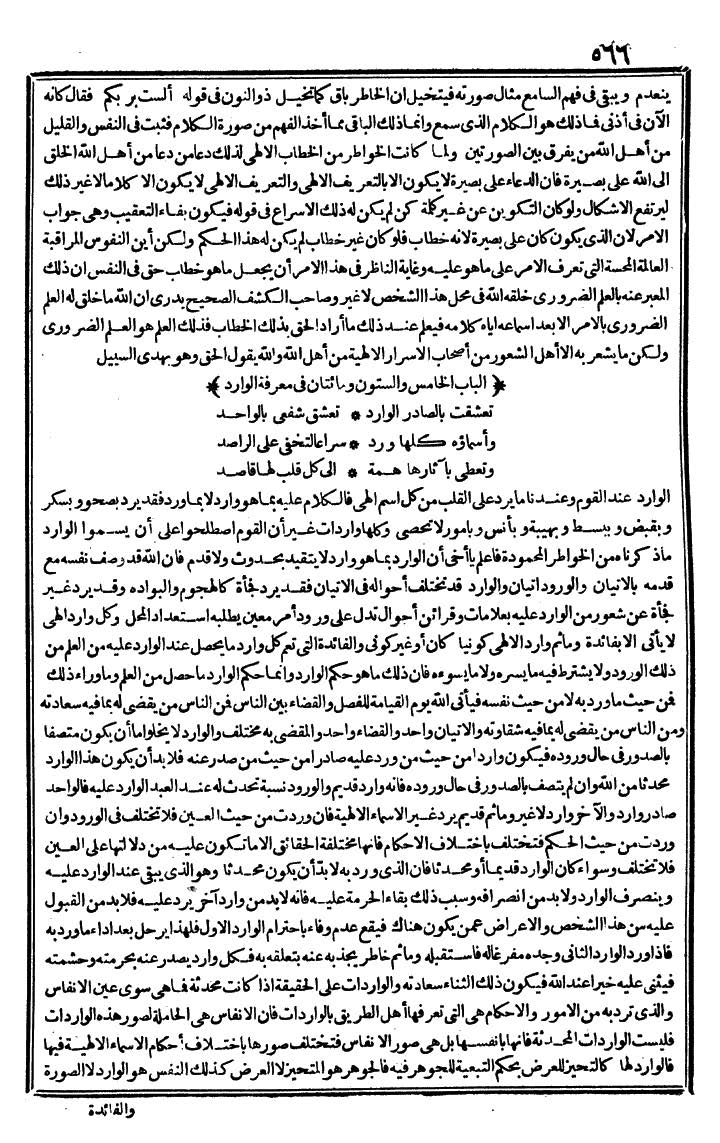 ٥٦٦
ينعدم ويبقى فى فهم السامع مثال صورته فيتخيل ان الخاطر باق كما تخيل ذو النون فى قوله ألست بربكم فقال كانه
الآن فى أذنى فما ذلك هو الكلام الذى سمع وانما ذلك الباقى مما أخذ الفهم من صورة الكلام فثبت فى النفس والقليل
من أهل الله من يفرق بين الصورتين ولما كانت الخواطر من الخطاب الالهى لذلك دعا من دعا من أهل الله الخلق
الى الله على بصيرة فان الدعاء على بصيرة لا يكون الا بالتعريف الالهى والتعريف الالهى لا يكون الا كلاما لا غير ذلك
ليرتفع الاشكال ولو كان التكوين عن غير كلمة كن لم يكن له ذلك الاسراع فى قوله فيكون بفاء التعقيب وهى جواب
الامر لان الذى يكون كان على بصيرة لانه خطاب فلو كان غير خطاب لم يكن له هذا الحكم ولكن أين النفوس المراقبة
العالمة المحسة التى تعرف الامر على ما هو عليه وغاية الناظر فى هذا الامر أن يجعل ما هو خطاب حق فى النفس ان ذلك
المعبر عنه بالعلم الضرورى خلقه الله فى محل هذا الشخص لا غير وصاحب الكشف الصحيح يدرى ان الله ما خلق له العلم
الضرورى بالامر الا بعد اسماعه اياه كلامه فيعلم عند ذلك ما أراد الحق بذلك الخطاب فذلك العلم هو العلم الضرورى
ولكن ما يشعر به الا أهل الشعور من أصحاب الاسرار الالهية من أهل الله والله يقول الحق وهو يهدى السبيل
﴿ الباب الخامس والستون ومائتان فى معرفة الوارد ﴾
تعشقت بالصادر الوارد * تعشق شفعى بالواحد
وأسماؤه كلها ورد * سراعا لتخفى على الراصد
وتعطى بآثارها همة * الى كل قلب لها قاصد
الوارد عند القوم وعندنا ما يرد على القلب من كل اسم الهى فالكلام عليه بما هو وارد لا بما ورد فقد يرد بصحو وبسكر
وبقبض وببسط وبهيبة وبأنس وبامور لا تحصى وكلها واردات غير أن القوم اصطلحوا على أن يسموا الوارد
ما ذكرناه من الخواطر المحمودة فاعلم يا أخى أن الوارد بما هو وارد لا يتقيد بحدوث ولا قدم فان الله قد وصف نفسه مع
قدمه بالاتيان والورود اتيان والوارد قد تختلف أحواله فى الاتيان فقد يرد فجأة كالهجوم والبواده وقد يرد غير
فجأة عن شعور من الوارد عليه بعلامات وقرائن أحوال تدل على ورود أمر معين يطلبه استعداد المحل وكل وارد الهى
لا يأتى الا بفائدة وما ثم وارد الا الهى كونيا كان أو غير كونى والفائدة التى تعم كل وارد ما يحصل عند الوارد عليه من العلم من
ذلك الورود ولا يشترط فيه ما يسره ولا ما يسوءه فان ذلك ما هو حكم الوارد وانما حكم الوارد ما حصل من العلم وما وراء ذلك
فمن حيث ما ورد به لا من حيث نفسه فيأتى الله يوم القيامة للفصل والقضاء بين الناس فمن الناس من يقضى له بما فيه سعادته
ومن الناس من يقضى له بما فيه شقاوته والاتيان واحد والقضاء واحد والمقضى به مختلف والوارد لا يخلو اما أن يكون متصفا
بالصدور فى حال وروده فيكون واردا من حيث من ورد عليه صادرا من حيث من صدر عنه فلا بد أن يكون هذا الوارد
محدثا من الله وان لم يتصف بالصدور فى حال وروده فانه وارد قديم والورود نسبة تحدث له عند العبد الوارد عليه فالواحد
صادر وارد والآخر وارد لا غير وما ثم قديم يرد غير الاسماء الالهية فان وردت من حيث العين فلا تختلف فى الورود وان
وردت من حيث الحكم فتختلف باختلاف الاحكام فانها مختلفة الحقائق الا ما تكون عليه من دلالتها على العين
فلا تختلف وسواء كان الوارد قديما أو محدثا فان الذى ورد به لا بد أن يكون محدثا وهو الذى يبقى عند الوارد عليه
وينصرف الوارد ولا بد من انصرافه وسبب ذلك بقاء الحرمة عليه فانه لا بد من وارد آخر يرد عليه فلا بد من القبول
عليه من هذا الشخص والاعراض عمن يكون هناك فيقع عدم وفاء باحترام الوارد الاول فلهذا يرحل بعد اداء ما ورد به
فاذا ورد الوارد الثانى وجده مفرغا له فاستقبله وما ثم خاطر يجذبه عنه بتعلقه به فكل وارد يصدر عنه بحرمته وحشمته
فيثنى عليه خيرا عند الله فيكون ذلك الثناء سعادته والواردات على الحقيقة اذا كانت محدثة فما هى سوى عين الانفاس
والذى ترد به من الامور والاحكام هى التى تعرفها أهل الطريق بالواردات فان الانفاس هى الحاملة لصور هذه الواردات
فليست الواردات المحدثة قائمة بانفسها بل هى صور الانفاس فتختلف صورها باختلاف أحكام الاسماء الالهية فيها
فالوارد لها كالتحيز للعرض بحكم التبعية للجوهر فيه فالجوهر هو المتحيز لا العرض كذلك النفس هو الوارد لا الصورة
والفائدة